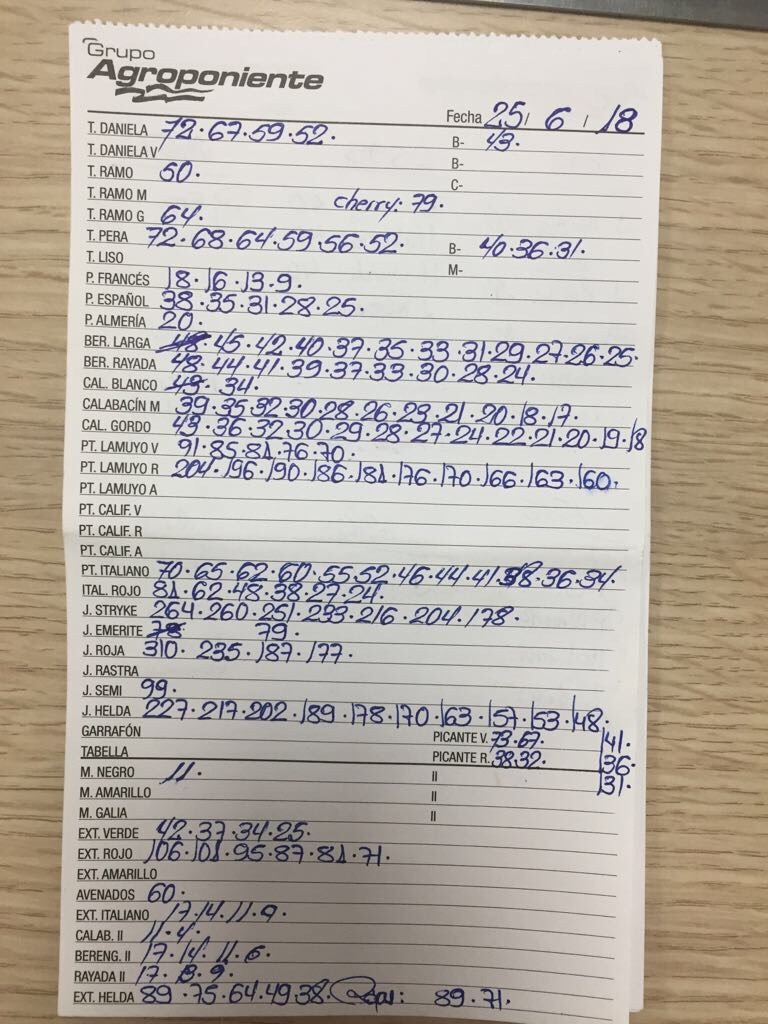 Grupo
Agroponiente
Fecha 25/ 6 / 18
T. DANELA 72·67·59·52· B- 43·
T. DANIELA V B-
T. RAMO 50· C-
T. RAMO M cherry: 79·
T. RAMO G 64·
T. PERA 72·68·64·59·56·52· B- 40·36·31·
T. LISO M-
P. FRANCÉS 18·16·13·9·
P. ESPAÑOL 38·35·31·28·25·
P. ALMERÍA 20·
BER. LARGA 48·45·42·40·37·35·33·31·29·27·26·25·
BER. RAYADA 48·44·41·39·37·33·30·28·24·
CAL. BLANCO 43·34·
CALABACÍN M 39·35·32·30·28·26·23·21·20·18·17·
CAL. GORDO 43·36·32·30·29·28·27·24·22·21·20·19·18
PT. LAMUYO V 91·85·81·76·70·
PT. LAMUYO R 204·196·190·186·181·176·170·166·163·160·
PT. LAMUYO A
PT. CALIF. V
PT. CALIF. R
PT. CALIF. A
PT. ITALIANO 70·65·62·60·55·52·46·44·41·38·36·34·
ITAL. ROJO 81·62·48·38·27·24·
J. STRYKE 264·260·251·233·216·204·178·
J. EMERITE 78 79·
J. ROJA 310· 235·187·177·
J. RASTRA
J. SEMI 99·
J. HELDA 227·217·202·189·178·170·163·157·153·148·
GARRAFÓN PICANTE V. 73·67· 141·
TABELLA PICANTE R. 38·32· 136·
131·
M. NEGRO 11· II
M. AMARILLO II
M. GALIA II
EXT. VERDE 42·37·34·25·
EXT. ROJO 106·101·95·87·81·71·
EXT. AMARILLO
AVENADOS 60·
EXT. ITALIANO 17·14·11·9·
CALAB. II 11·4·
BERENG. II 17·14·11·6·
RAYADA II 17·13·9·
EXT. HELDA 89·75·64·49·38· 89·71·